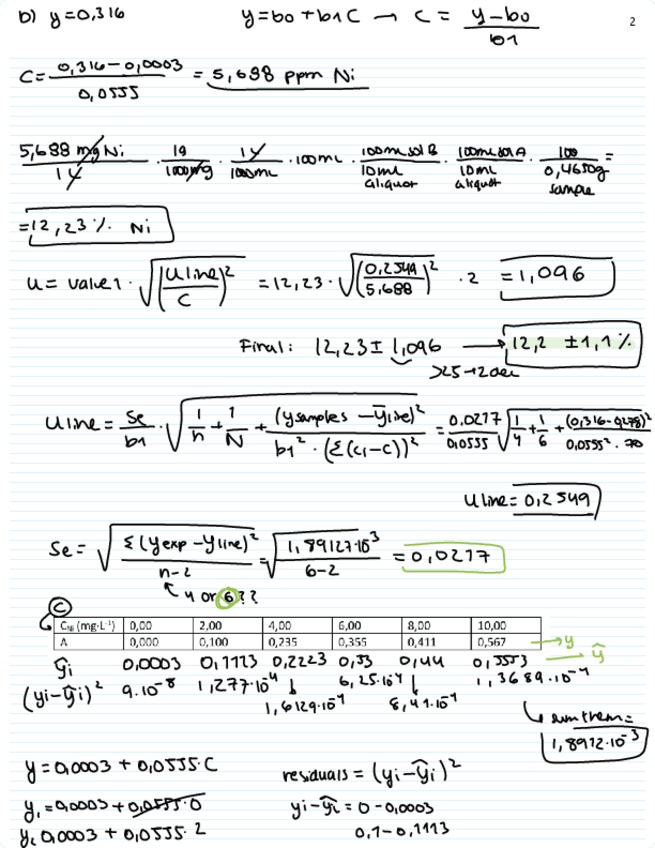 b) y=0,316 y=b0+b1C → C = (y-b0)/b1 2
C = (0,316-0,0003)/0,0555 = 5,688 ppm Ni
5,688 mg Ni/1L · 1g/1000mg · 1L/1000mL · 100mL · 100mL sol B/10mL aliquot · 100mL sol A/10mL aliquot · 100/0,4650g sample =
= 12,23% Ni
U = value1 · √(Uline/C)² = 12,23 · √(0,2549/5,688)² · 2 = 1,096
Final: 12,23 ± 1,096 → 12,2 ± 1,1%
>25→2dec
Uline = Se/b1 · √(1/n + 1/N + (ysamples - ȳline)²/(b1² · (Σ(ci-c))²)) = 0,0217/0,0555 √(1/4 + 1/6 + (0,316-0,278)²/(0,0555² · 70))
Uline = 0,2549
Se = √(Σ(yexp-yline)²/(n-2)) = √(1,89127·10⁻³/(6-2)) = 0,0217
4 or 6??
C
C_Ni (mg·L⁻¹) 0,00 2,00 4,00 6,00 8,00 10,00
A 0,000 0,100 0,235 0,355 0,411 0,567 → y
ŷi 0,0003 0,1113 0,2223 0,33 0,44 0,5553 → ŷ
(yi-ŷi)² 9·10⁻⁸ 1,277·10⁻⁴ 1,6129·10⁻⁴ 6,25·10⁻⁴ 8,41·10⁻⁴ 1,3689·10⁻⁴
sum them =
1,8912·10⁻³
y = 0,0003 + 0,0555·C residuals = (yi-ŷi)²
y₁ = 0,0003 + 0,0555·0 yi-ŷi = 0-0,0003
y₂ 0,0003 + 0,0555·2 0,1-0,1113